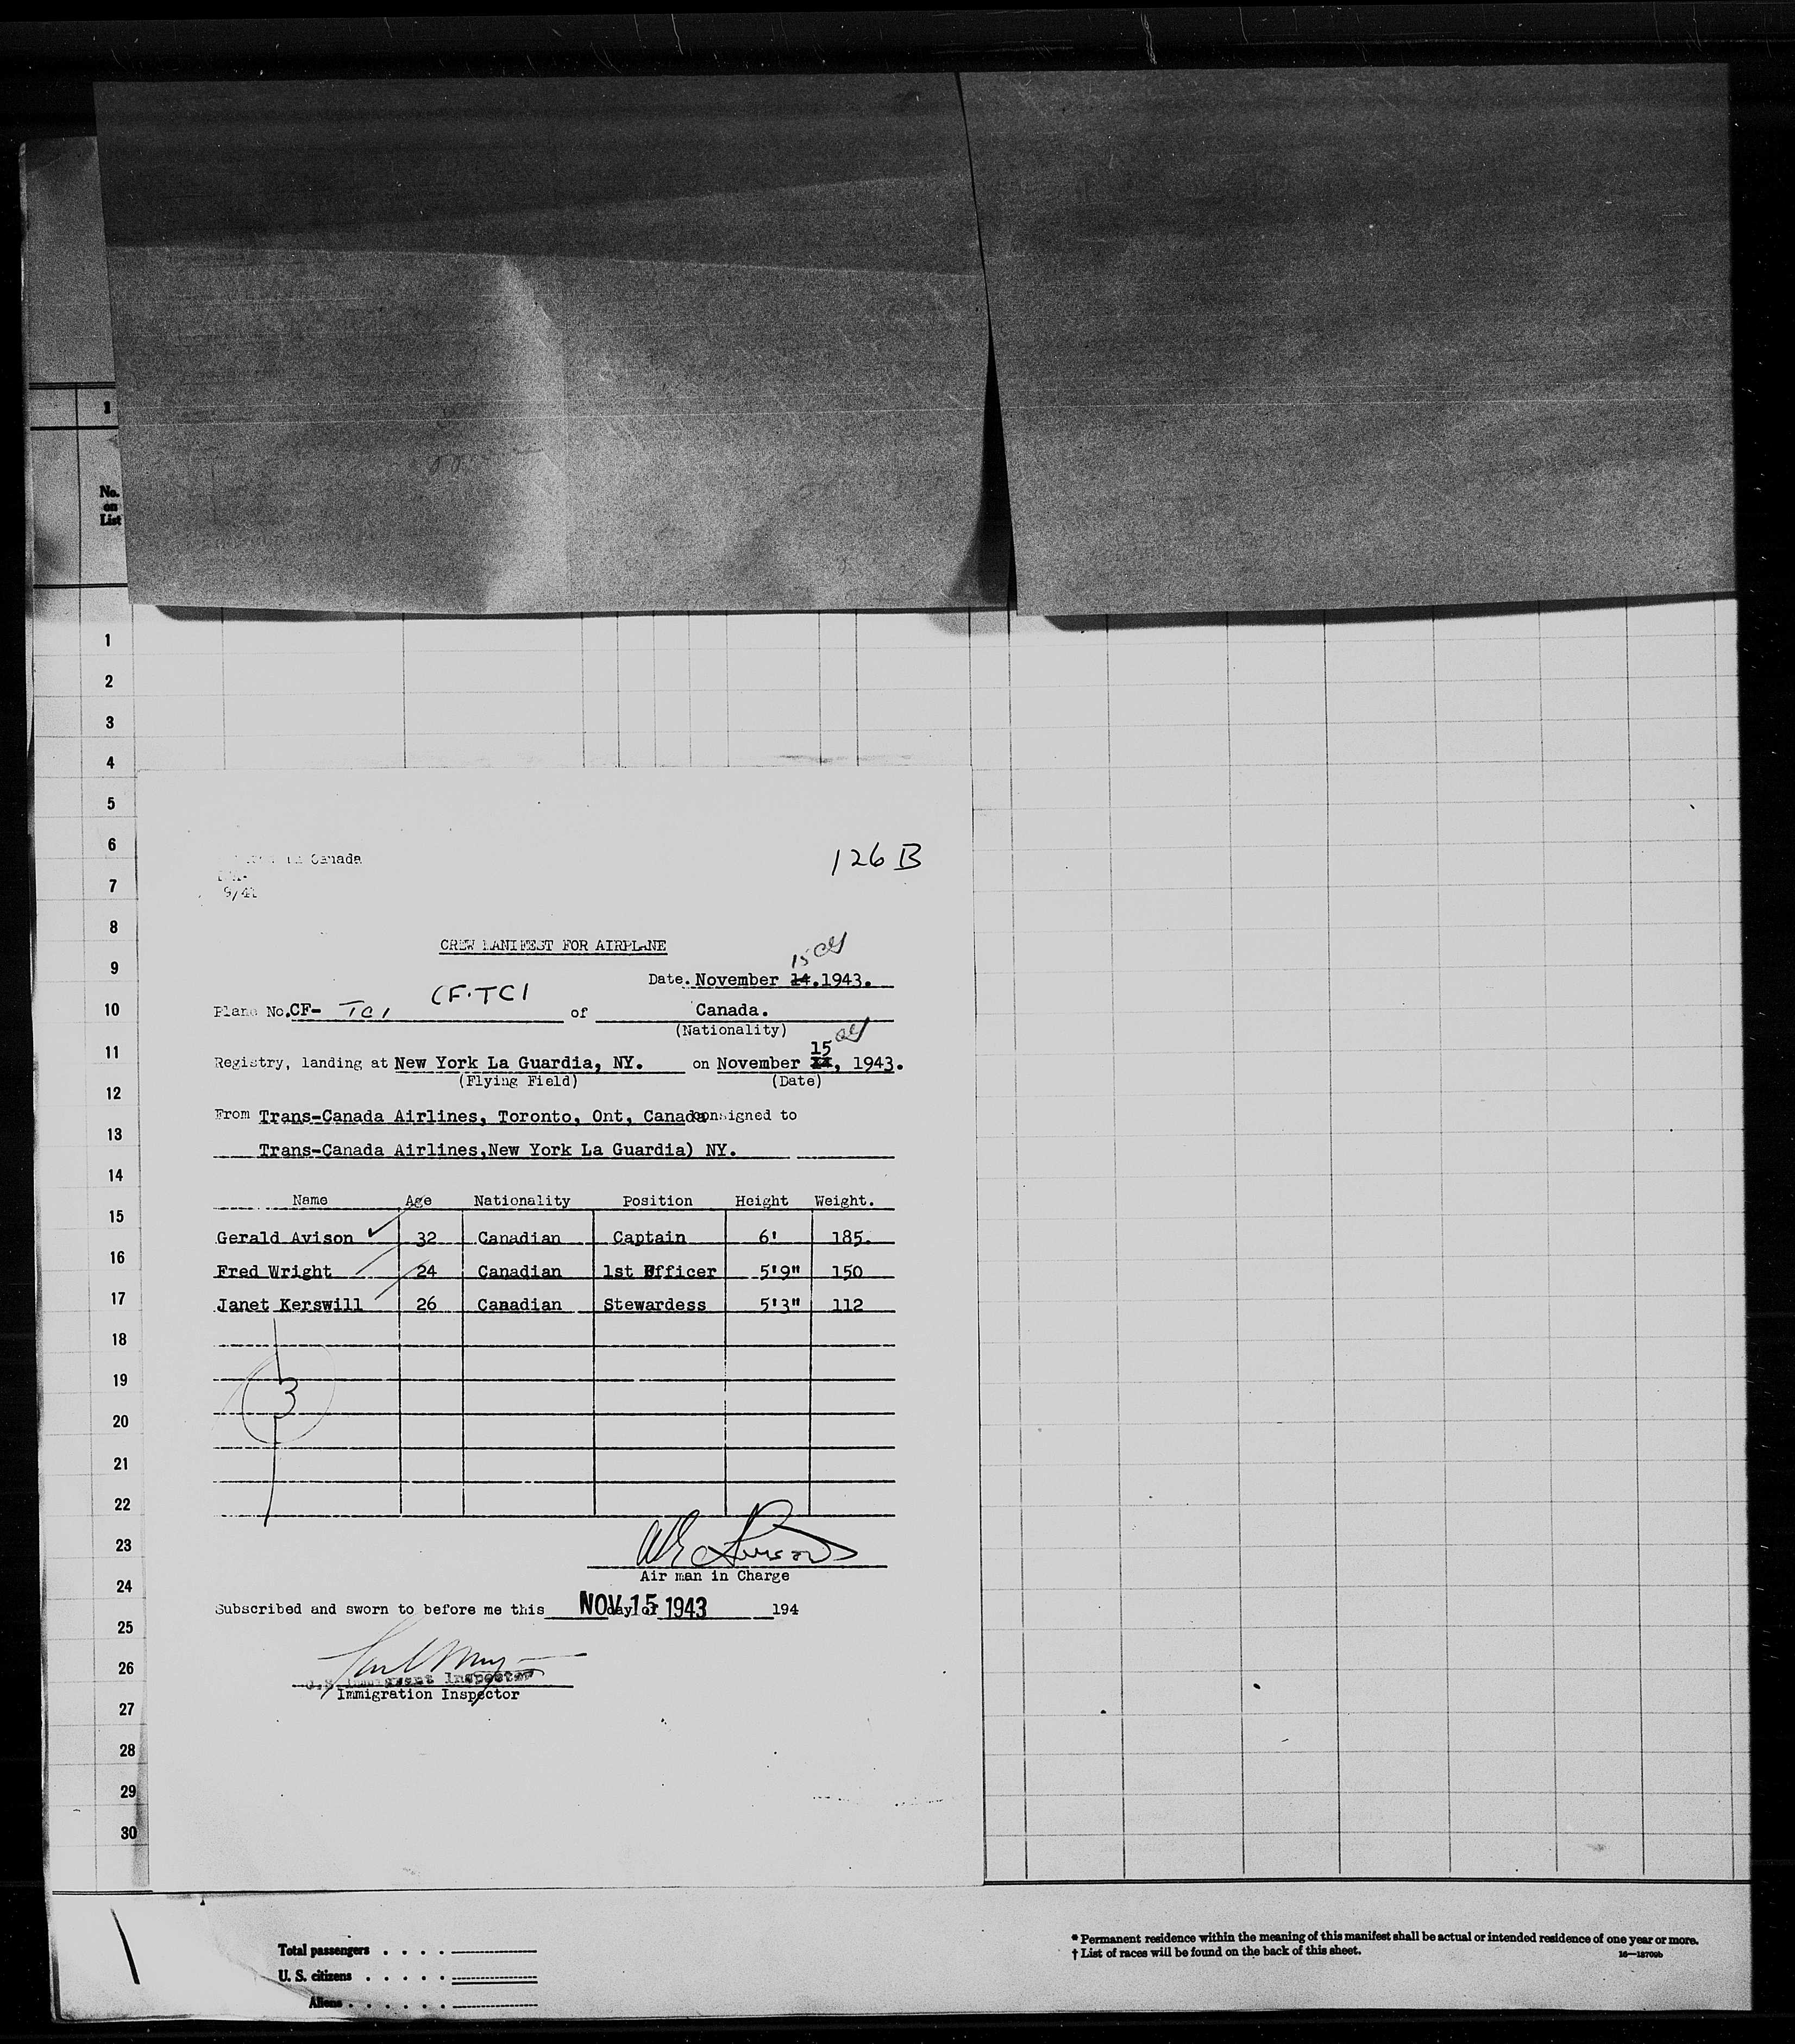 1
No.
on
List
1
2
3
4
5
6
7
8
9
10
11
12
13
14
15
16
17
18
19
20
21
22
23
24
25
26
27
28
29
30
Canada
9/42
126 B
CREW MANIFEST FOR AIRPLANE
15
Date. November 14. 1943.
CF-TCI
Plane No. CF- TCI of Canada.
(Nationality)
15
Registry, landing at New York La Guardia, NY. on November 14, 1943.
(Flying Field) (Date)
From Trans-Canada Airlines, Toronto, Ont, Canada consigned to
Trans-Canada Airlines,New York La Guardia) NY.
Name Age Nationality Position Height Weight.
Gerald Avison 32 Canadian Captain 6' 185.
Fred Wright 24 Canadian 1st Officer 5'9" 150
Janet Kerswill 26 Canadian Stewardess 5'3" 112
3
Air man in Charge
Subscribed and sworn to before me this day of NOV 15 1943 194
U.S. Immigrant Inspector
Immigration Inspector
Total passengers . . . .
U. S. citizens . . . . .
Aliens . . . . . .
* Permanent residence within the meaning of this manifest shall be actual or intended residence of one year or more.
† List of races will be found on the back of this sheet. 16—18709b